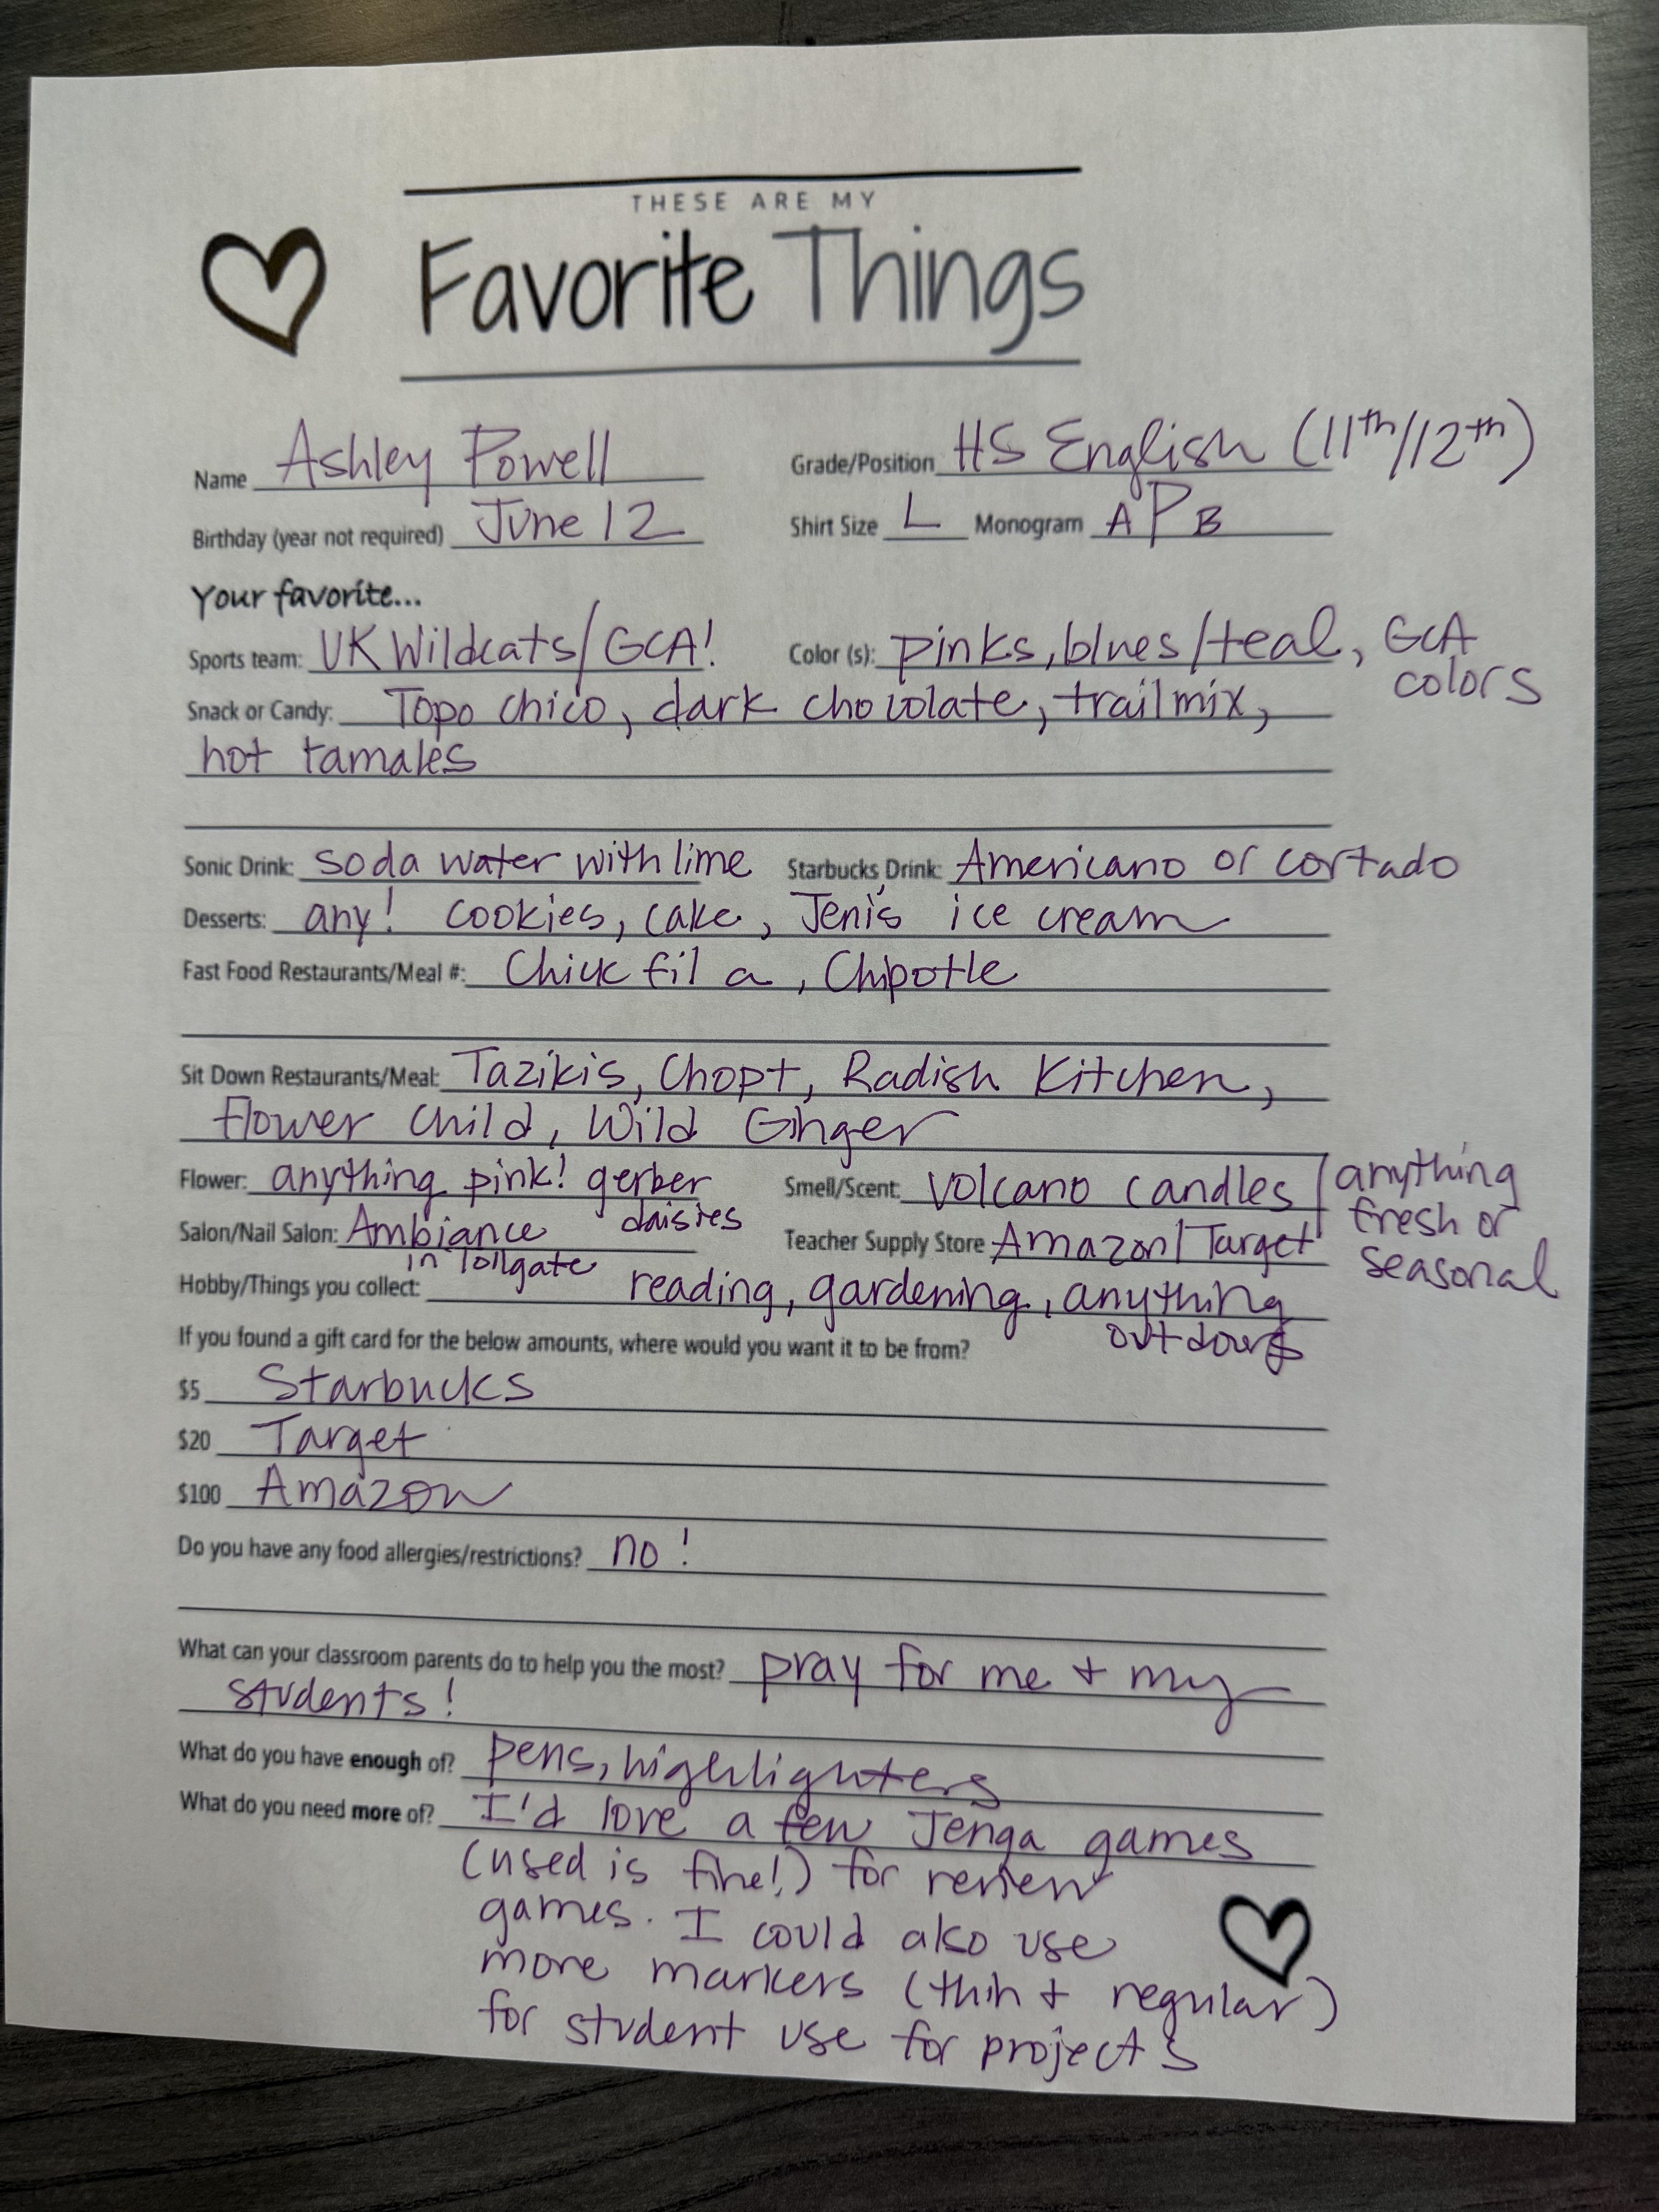 THESE ARE MY
Favorite Things
Name Ashley Powell Grade/Position HS English (11th/12th)
Birthday (year not required) June 12 Shirt Size L Monogram APB
Your favorite...
Sports team: UK Wildcats/GCA! Color (s): pinks, blues/teal, GCA
colors
Snack or Candy: Topo chico, dark chocolate, trail mix,
hot tamales
Sonic Drink: soda water with lime Starbucks Drink: Americano or cortado
Desserts: any! cookies, cake, Jeni's ice cream
Fast Food Restaurants/Meal #: Chick fil a, Chipotle
Sit Down Restaurants/Meal: Tazikis, Chopt, Radish Kitchen,
Flower Child, Wild Ginger
Flower: anything pink! gerber
daisies
Smell/Scent: Volcano candles / anything
fresh or
seasonal
Salon/Nail Salon: Ambiance
in Tollgate
Teacher Supply Store Amazon/Target
Hobby/Things you collect: reading, gardening, anything
outdoors
If you found a gift card for the below amounts, where would you want it to be from?
$5 Starbucks
$20 Target
$100 Amazon
Do you have any food allergies/restrictions? no!
What can your classroom parents do to help you the most? pray for me + my
students!
What do you have enough of? pens, highlighters
What do you need more of? I'd love a few Jenga games
(used is fine!) for review
games. I could also use
more markers (thin + regular)
for student use for projects